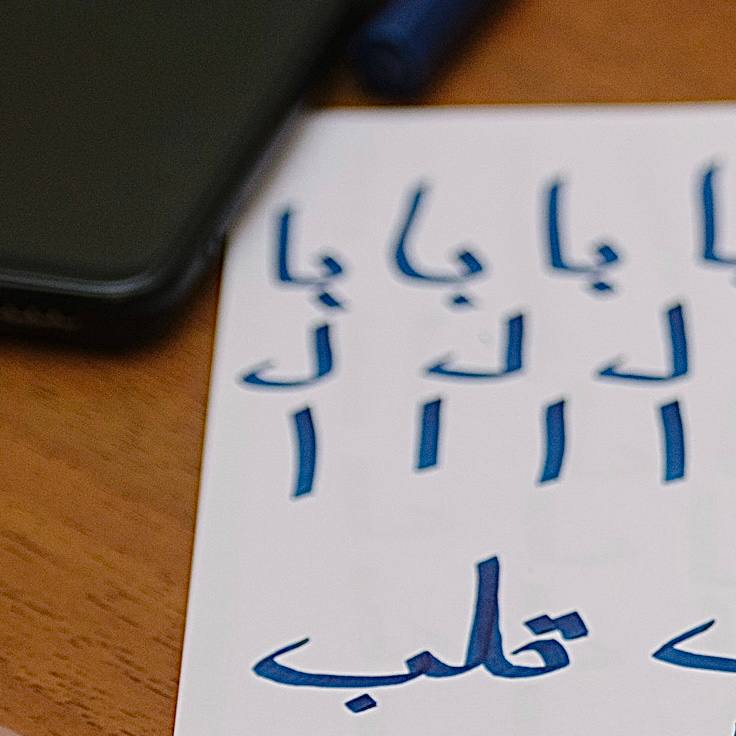 با با با
ل ل ل
ا ا ا ا
قلب